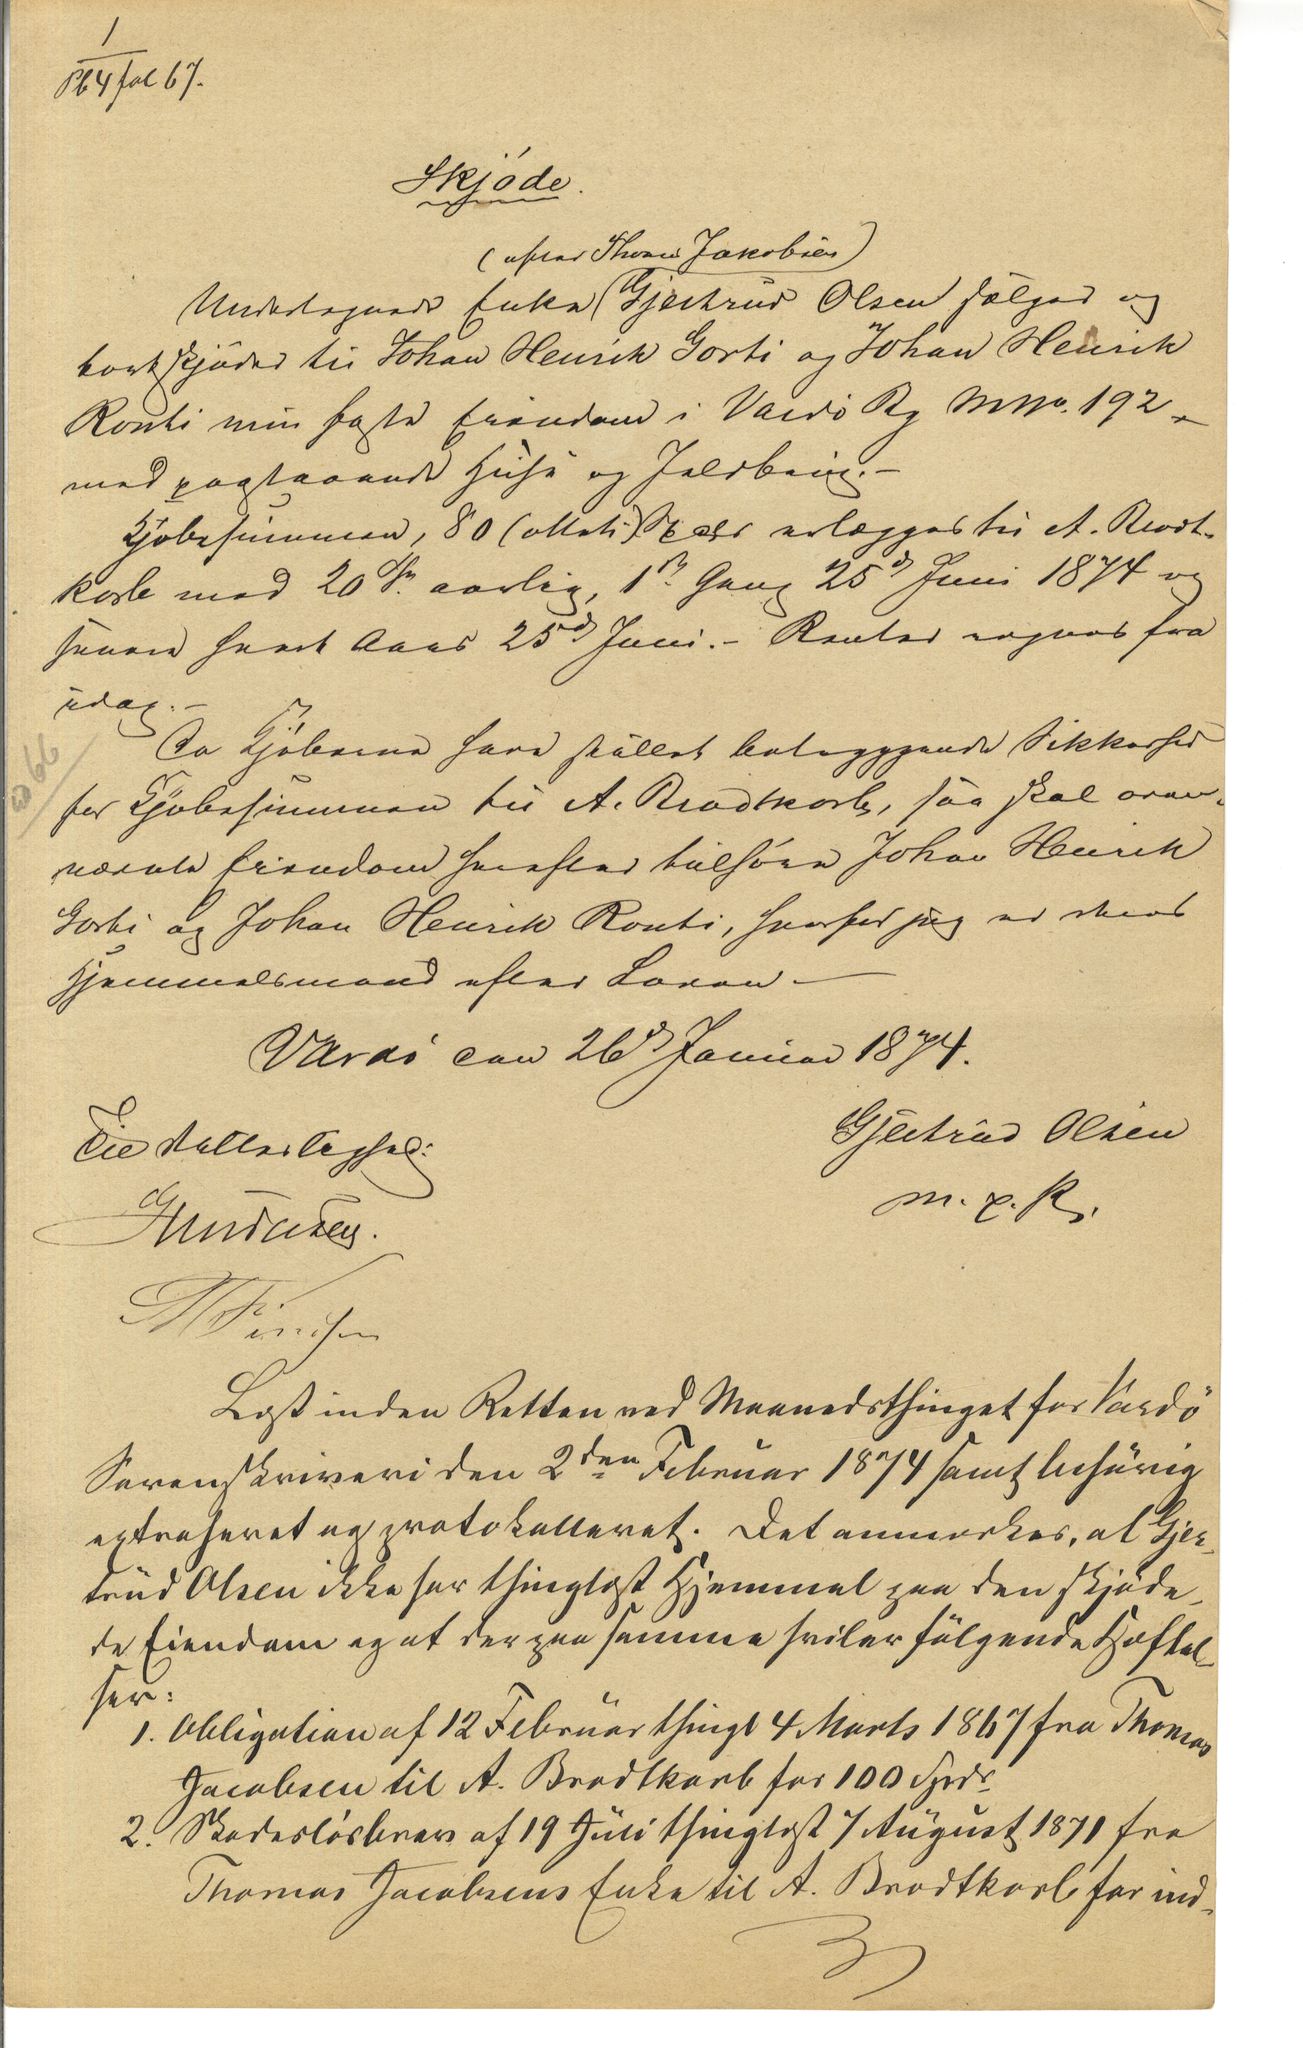 1
Pb 4 fol 67.
Skjöde.
(efter Thom. Jakobsen)
Undertegnede Enke (Gjertrud Olsen sælger og
bortskjöder til Johan Henrik Gorti og Johan Henrik
Ronti min faste Eiendom i Vardö By M No. 192
med paastaaende Huse og Jeldbrug.-
Kjöbesummen, 80 (otteti) Spdlr erlægges til A. Brodt-
korb med 20 Spd. aarlig, 1ste Gang 25de Juni 1874 og
senere hvert Aars 25de Juni.- Renter regnes fra
idag.-
Da Kjöberne have stillet betryggende Sikkerhed
for Kjöbesummen til A. Brodtkorb, saa skal oven-
nævnte Eiendom herefter tilhöre Johan Henrik
Gorti og Johan Henrik Ronti, hvorfor jeg er deres
Hjemmelsmand efter Loven.-
Vardö den 26de Januar 1874.
Gjertrud Olsen
m. p. P.
Til Vitterlighed:
Læst inden Retten ved Maanedsthinget for Vardö
Sorenskriveri den 2den Februar 1874 samt behörig
extraheret og protokolleret. Det anmærkes, at Gjer-
trud Olsen ikke har thinglæst Hjemmel paa den skjöde-
de Eiendom og at der paa samme hviler fölgende Hæftel-
ser:
1. Obligation af 12 Februar thingl 4 Marts 1867 fra Thomas
Jacobsen til A. Brodtkorb for 100 Spdr
2. Skadeslösbrev af 19 Juli thinglæst 7 August 1871 fra
Thomas Jacobsens Enke til A. Brodtkorb for ind-